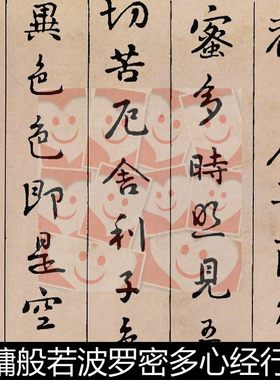 蜜多時照見五
切苦厄舍利子色
異色色即是空
般若波罗密多心经行